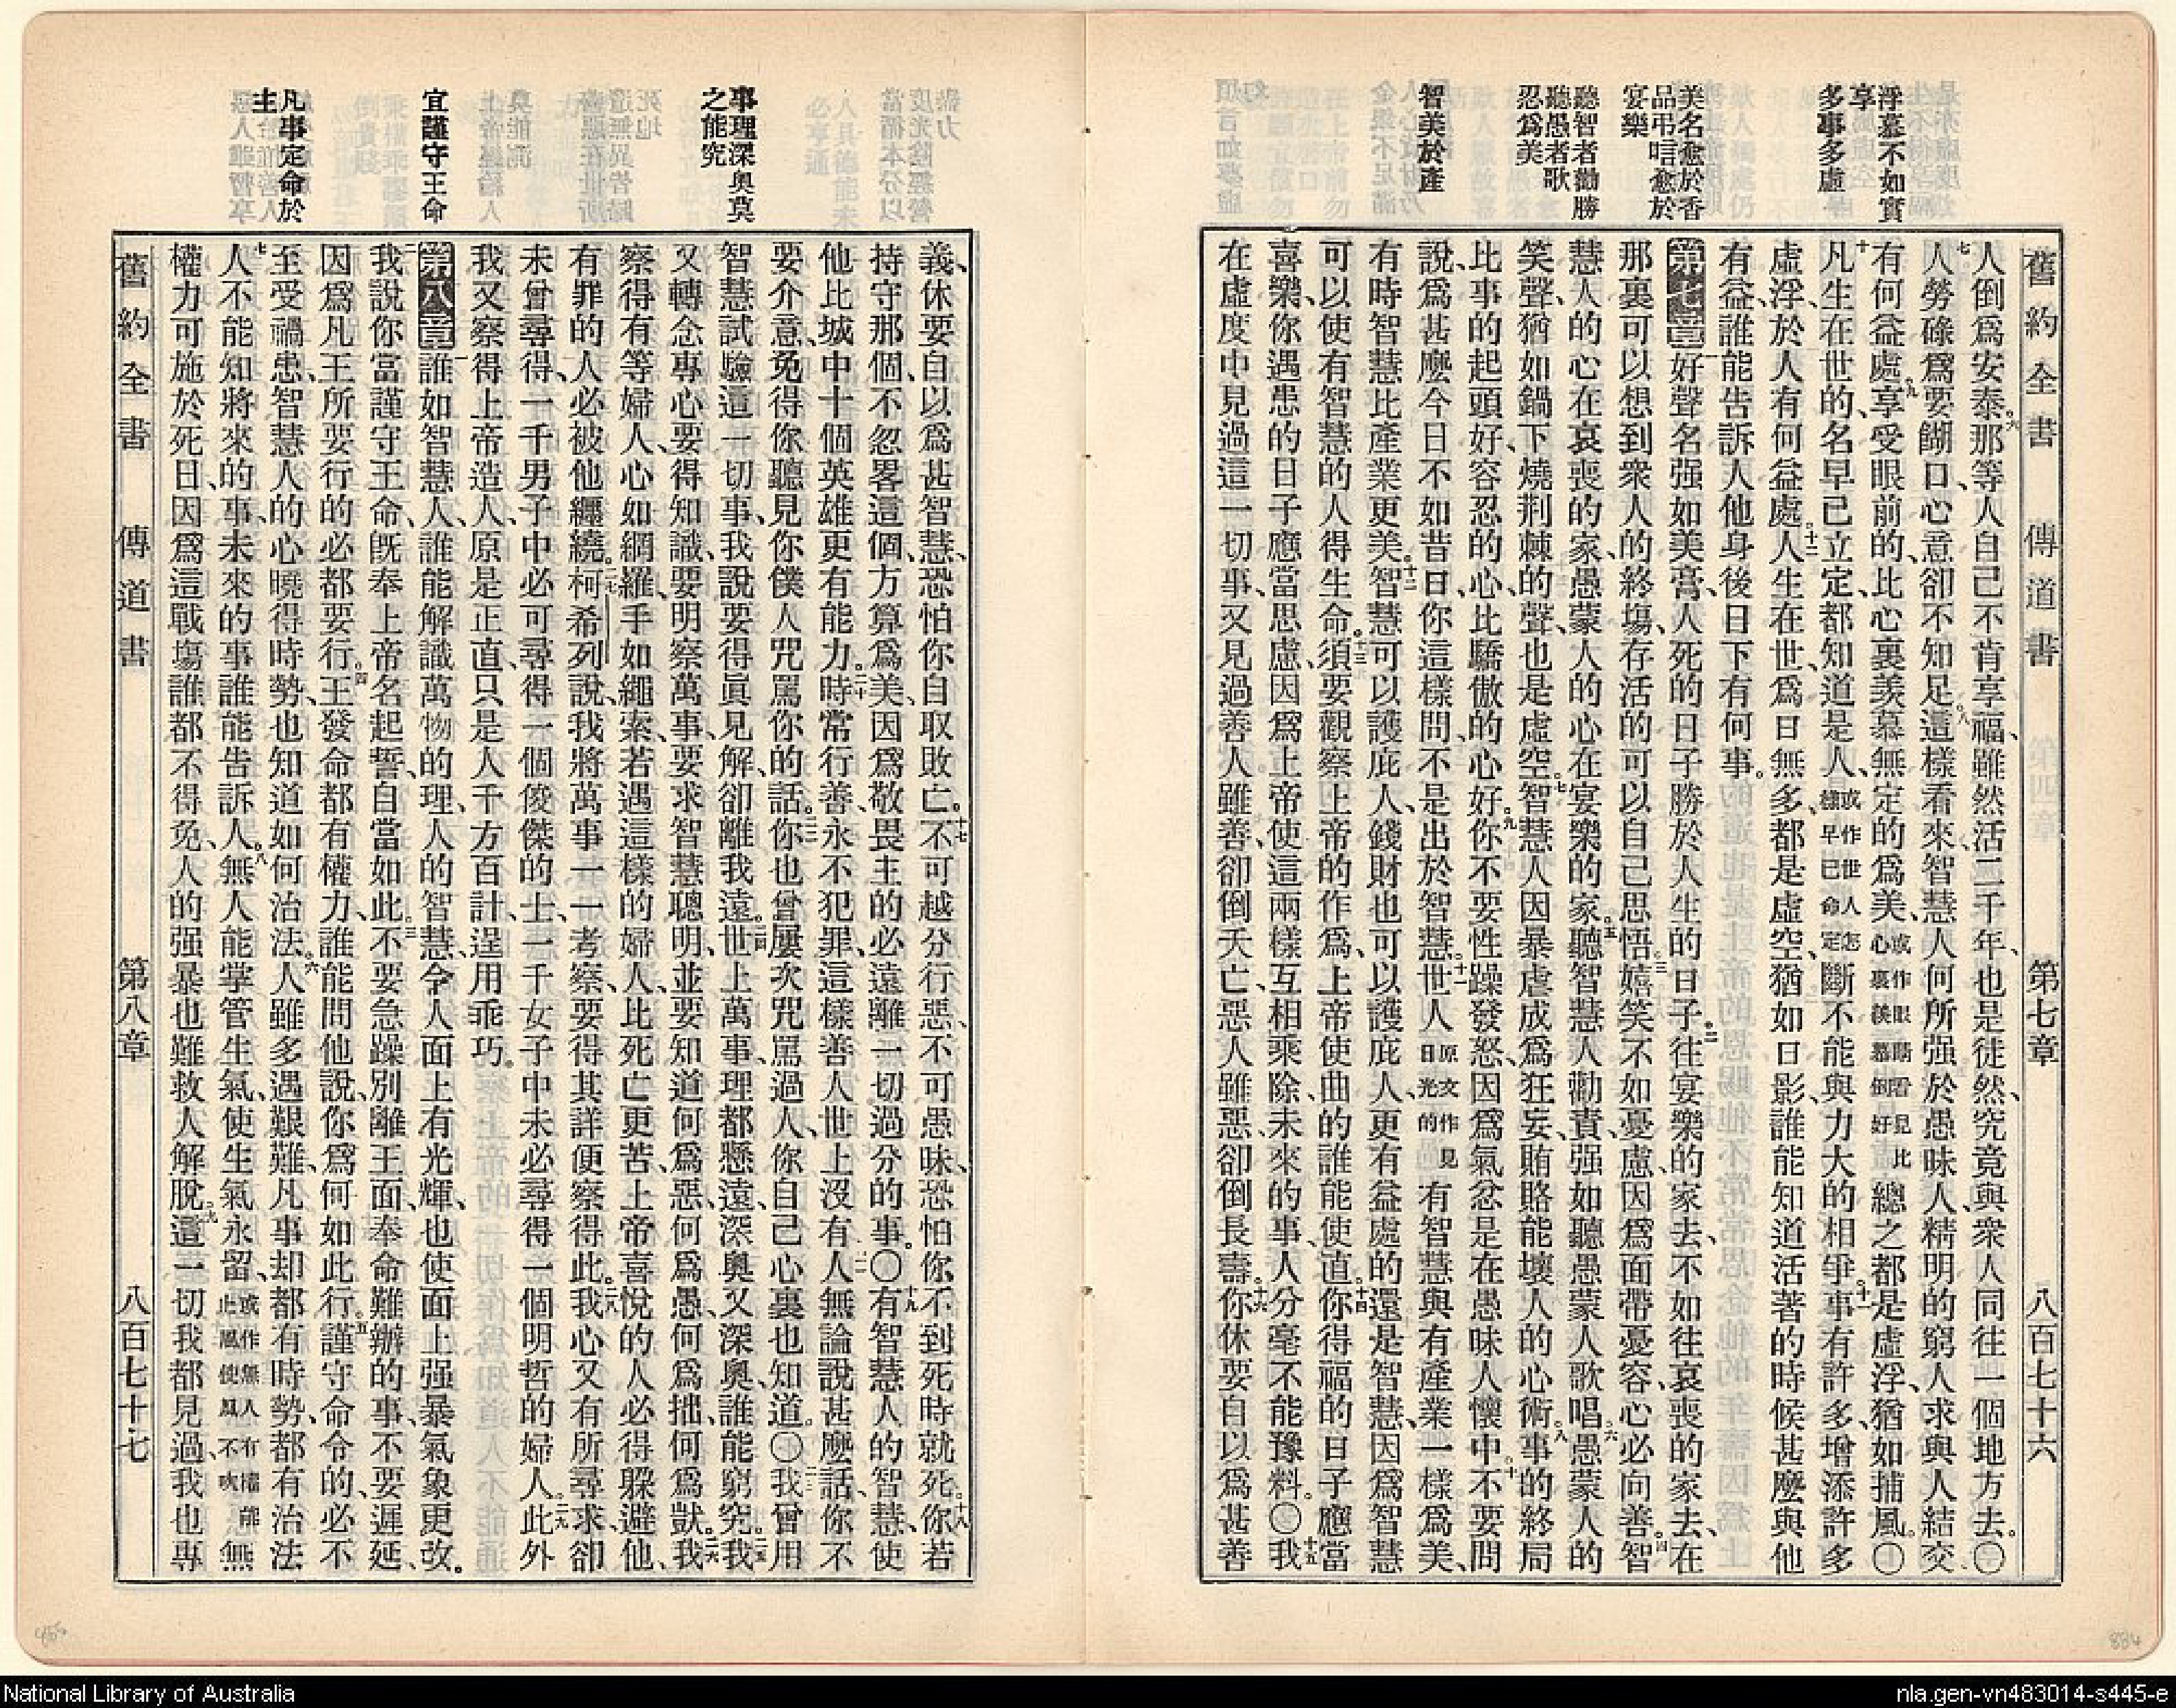 舊約全書 傳道書 第七章 八百七十六
浮慕不如實
享
多事多虛
美名愈於香
品弔唁愈於
宴樂
聽智者勸勝
聽愚者歌
忍爲美
智美於產
人倒爲安泰。六那等人自己不肯享福、雖然活二千年、也是徒然、究竟與衆人同往一個地方去。〇
七人勞碌爲要餬口、心意卻不知足。八這樣看來、智慧人何所强於愚昧人、精明的窮人求與人結交、
有何益處。九享受眼前的、比心裏羨慕無定的爲美、或作眼睛看見比心裏羨慕倒好總之都是虛浮、猶如捕風。〇
十凡生在世的、名早已立定、都知道是人、或作世人怎樣早已命定斷不能與力大的相爭。十一事有許多、增添許多
虛浮、於人有何益處。十二人生在世、爲日無多、都是虛空、猶如日影、誰能知道活著的時候甚麼與他
有益、誰能告訴人他身後日下有何事。
第七章一好聲名强如美膏、人死的日子勝於人生的日子。二往宴樂的家去、不如往哀喪的家去、在
那裏可以想到衆人的終塲、存活的可以自己思悟。三嬉笑不如憂慮、因爲面帶憂容、心必向善。四智
慧人的心在哀喪的家、愚蒙人的心在宴樂的家。五聽智慧人勸責、强如聽愚蒙人歌唱。六愚蒙人的
笑聲、猶如鍋下燒荆棘的聲、也是虛空。七智慧人因暴虐成爲狂妄、賄賂能壞人的心術。八事的終局
比事的起頭好、容忍的心、比驕傲的心好。九你不要性躁發怒、因爲氣忿是在愚昧人懷中。十不要問
說、爲甚麼今日不如昔日、你這樣問、不是出於智慧。十一世人原文作見日光的有智慧與有產業一樣爲美、
有時智慧比產業更美。十二智慧可以護庇人、錢財也可以護庇人、更有益處的還是智慧、因爲智慧
可以使有智慧的人得生命。十三須要觀察上帝的作爲、上帝使曲的誰能使直。十四你得福的日子應當
喜樂、你遇患的日子應當思慮、因爲上帝使這兩樣互相乘除、未來的事、人分毫不能豫料。〇十五我
在虛度中見過這一切事、又見過善人雖善、卻倒夭亡、惡人雖惡、卻倒長壽。十六你休要自以爲甚善
義、休要自以爲甚智慧、恐怕你自取敗亡。十七不可越分行惡、不可愚昧、恐怕你不到死時就死。十八你若
持守那個、不忽畧這個、方算爲美、因爲敬畏主的、必遠離一切過分的事。〇十九有智慧人的智慧、使
他比城中十個英雄更有能力。二十時常行善、永不犯罪、這樣善人世上沒有。二一人無論說甚麼話、你不
要介意、免得你聽見你僕人咒罵你的話。二二你也曾屢次咒罵過人、你自己心裏也知道。〇二三我曾用
智慧試驗這一切事、我說要得眞見解、卻離我遠。二四世上萬事、理都懸遠、深奧又深奧、誰能窮究。二五我
又轉念專心要得知識、要明察萬事、要求智慧聰明、並要知道何爲惡、何爲愚、何爲拙、何爲獃。二六我
察得有等婦人、心如網羅、手如繩索、若遇這樣的婦人、比死亡更苦、上帝喜悅的人必得躲避他、
有罪的人必被他纒繞。二七柯希列說、我將萬事一一考察、要得其詳、便察得此。二八我心又有所尋求、卻
未曾尋得、一千男子中必可尋得一個俊傑的士、一千女子中未必尋得一個明哲的婦人。二九此外
我又察得上帝造人、原是正直、只是人千方百計、逞用乖巧。
第八章一誰如智慧人、誰能解識萬物的理、人的智慧、令人面上有光輝、也使面上强暴氣象更改。
二我說你當謹守王命、旣奉上帝名起誓、自當如此。三不要急躁別離王面、奉命難辦的事、不要遲延、
因爲凡王所要行的、必都要行。四王發命都有權力、誰能問他說、你爲何如此行。五謹守命令的、必不
至受禍患、智慧人的心曉得時勢、也知道如何治法。六人雖多遇艱難、凡事却都有時勢、都有治法
七人不能知將來的事、未來的事誰能告訴人。八無人能掌管生氣、使生氣永留、或作無人有權能止風使風不吹無
權力可施於死日、因爲這戰塲誰都不得免、人的强暴也難救人解脫。九這一切我都見過、我也專
事理深奥莫
之能究
宜謹守王命
凡事定命於
主
舊約全書 傳道書 第八章 八百七十七
National Library of Australia
nla.gen-vn483014-s445-e